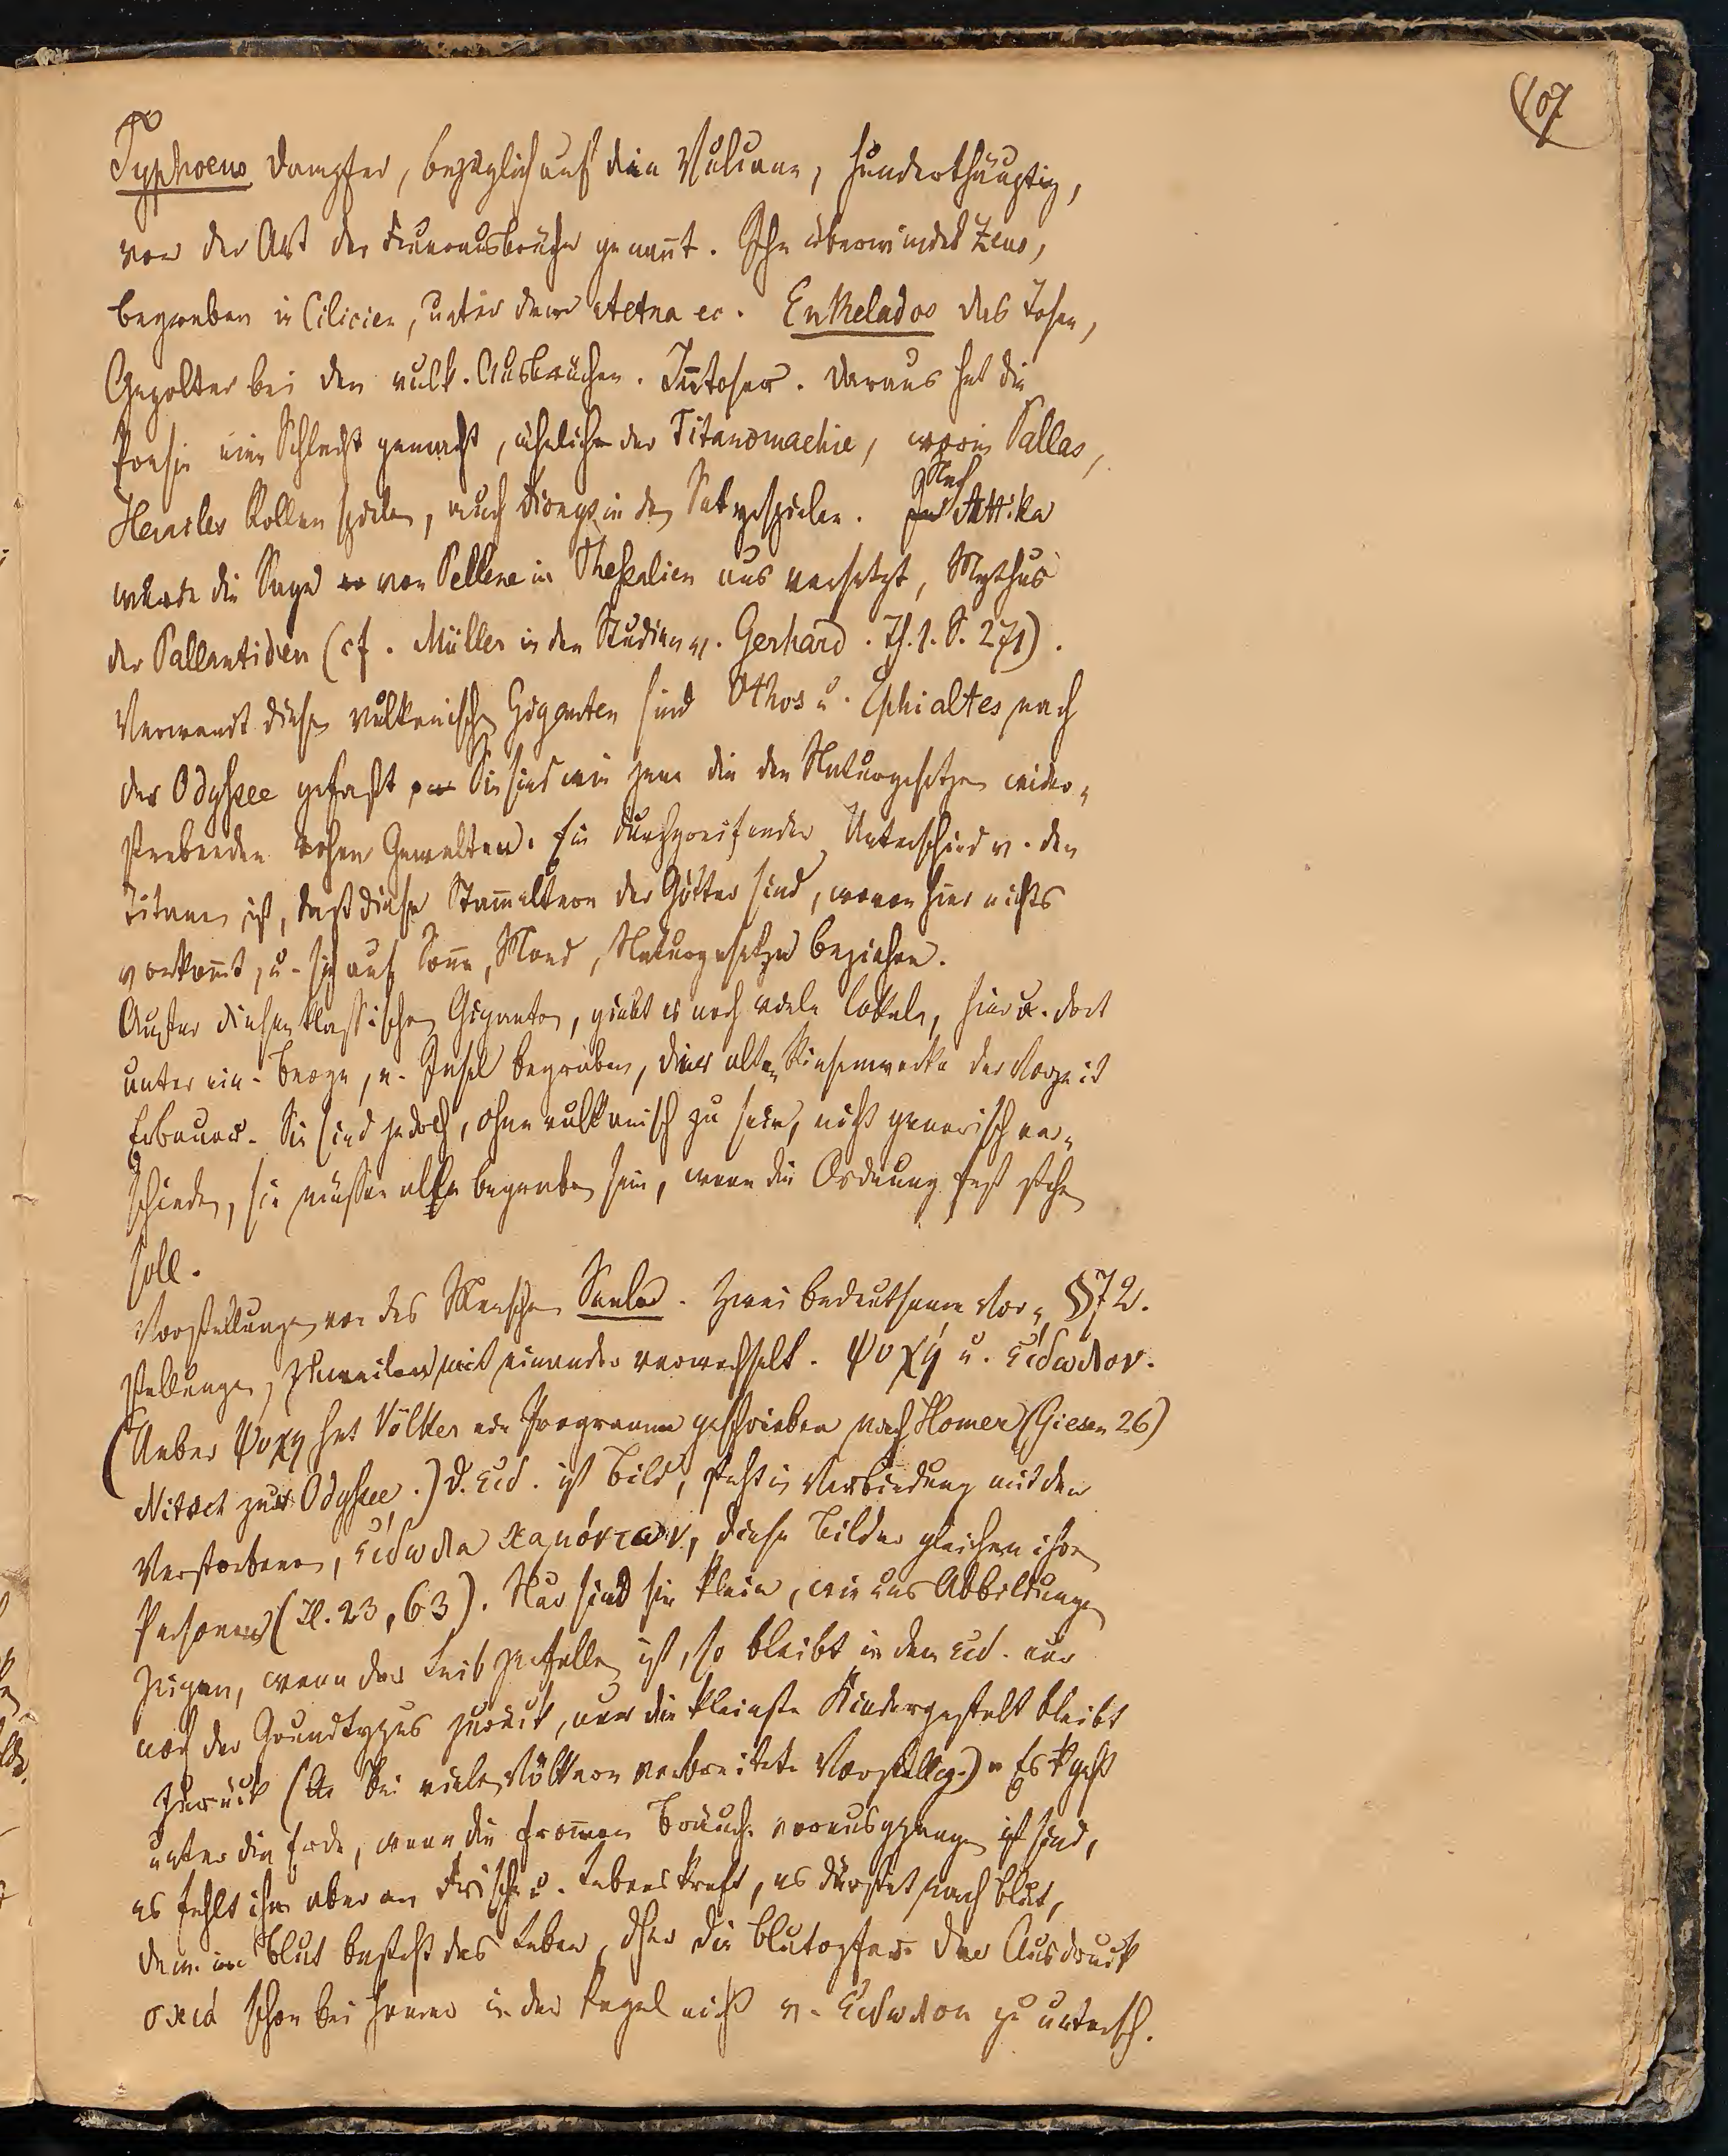 107
Typhoeus Dampfer, bezüglich auf die Vulcane, hunderthäuptig,
von der Art der Feuerausbrüche genannt. Ihn überwindet Zeus,
begraben in Cilicien, unter dem Aetna ec. Enkelados das Tosen,
Gepolter bei den vulk. Ausbrüchen. Intoser. Daraus hat die
Poesie eine Schlacht gemacht, ähnlich der Titanomachie, worin Pallas,
Heracles Rollen spielen, auch Dionys in den Satyrspielen. Nach Attika
wurde die Sage von Pellene in Thessalien aus versetzt, Mythus
der Pallantiden (cf. Müller in den Studien v. Gerhard. Th. 1. S. 271).
Verwandt diesen vulkanischen Giganten sind Othos u. Ephialtes nach
der Odyssee gefasst Sie sind wie jene die den Naturgesetzen wider-
strebenden rohen Gewalten. Ein durchgreifender Unterschied v. den
Titanen ist, daß diese Stammeltern der Götter sind, wovon hier nichts
vorkommt, u. sich auf Sonne, Mond, Naturgesetze beziehen.
Außer diesen klassischen Giganten, giebt es noch viele lokale, hier u. dort
unter ein. Berge, e. Insel begraben, die alten Riesenwerke der Vorzeit
Erbauer. Sie sind jedoch, ohne vulkanisch zu sein, nicht generisch ver-
schieden, sie müssen alle begraben sein, wenn die Ordnung fest stehen
soll.
Vorstellungen von des Menschen Seele. Zwei bedeutsame Vor- §72.
stellungen, zuweilen mit einander verwechselt. Ψυχή u. εἴδωλον.
(Ueber Ψυχη hat Völker ein Programm geschrieben nach Homer (Giesen 26)
Nitzch zur Odyssee.) D. εἰδ. ist Bild, steht in Verbindung mit den
Verstorbenen, εἴδωλα καμόντων, diese Bilder gleichen ihren
Personen (Il. 23, 63). Nur sind sie klein, wie uns Abbildungen
zeigen, wenn der Leib zerfallen ist, so bleibt in dem εἰδ. nur
noch der Grundtypus zurück, nur die kleinste Kindergestalt bleibt
zurück (bei vielen Völkern verbreitete Vorstellg.) Es geht
unter die Erde, wenn die frommen Bräuche vorausgegangen sind,
es fehlt ihm aber an Frische u. Lebenskraft, es dürstet nach Blut,
denn im Blut besteht das Leben, dher die Blutopfer. Der Ausdruck
σκιά schon bei Homer in der Regel nicht v. εἴδωλον zu untersch.